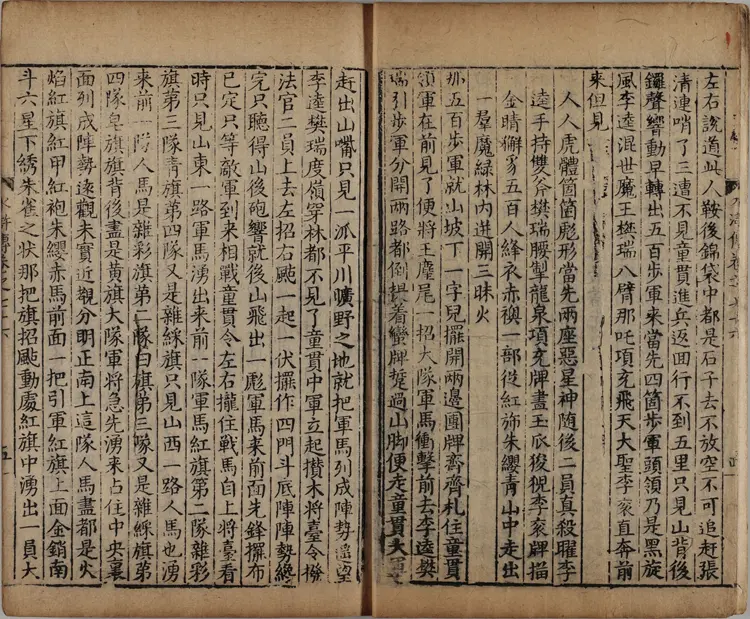 左右說道此人鞍後錦袋中都是石子去不放空不可追赶張
清連哨了三遭不見童貫進兵返回行不到五里只見山背後
鑼聲響動早轉出五百步軍來當先四箇步軍頭領乃是黑旋
風李逵混世魔王樊瑞八臂那吒項充飛天大聖李袞直奔前
來但見
人人虎體箇箇彪形當先兩座惡星神隨後二員真殺曜李
逵手持雙斧樊瑞腰掣龍泉項充牌畫玉爪狻猊李袞牌描
金睛獬豸五百人絳衣赤襖一部從紅旆朱纓青山中走出
一羣魔綠林內迸開三昧火
那五百步軍就山坡下一字兒擺開兩邊團牌齊齊札住童貫
領軍在前見了便將玉麈尾一招大隊軍馬衝擊前去李逵樊
瑞引步軍分開兩路都倒提着蠻牌踅過山脚便走童貫大軍
赶出山嘴只見一派平川曠野之地就把軍馬列成陣勢遙望
李逵樊瑞度嶺穿林都不見了童貫中軍立起攢木將臺令撥
法官二員上去左招右颭一起一伏擺作四門斗底陣陣勢纔
完只聽得山後砲響就後山飛出一彪軍馬來前面先鋒擺布
已定只等敵軍到來相戰童貫令左右攏住戰馬自上將臺看
時只見山東一路軍馬湧出來前一隊軍馬紅旗第二隊雜彩
旗第三隊青旗第四隊又是雜綵旗只見山西一路人馬也湧
來前一隊人馬是雜彩旗第二隊白旗第三隊又是雜綵旗第
四隊皂旗旗背後盡是黃旗大隊軍將急先湧來占住中央裏
面列成陣勢遠觀未實近覩分明正南上這隊人馬盡都是火
焰紅旗紅甲紅袍朱纓赤馬前面一把引軍紅旗上面金銷南
斗六星下綉朱雀之狀那把旗招颭動處紅旗中湧出一員大